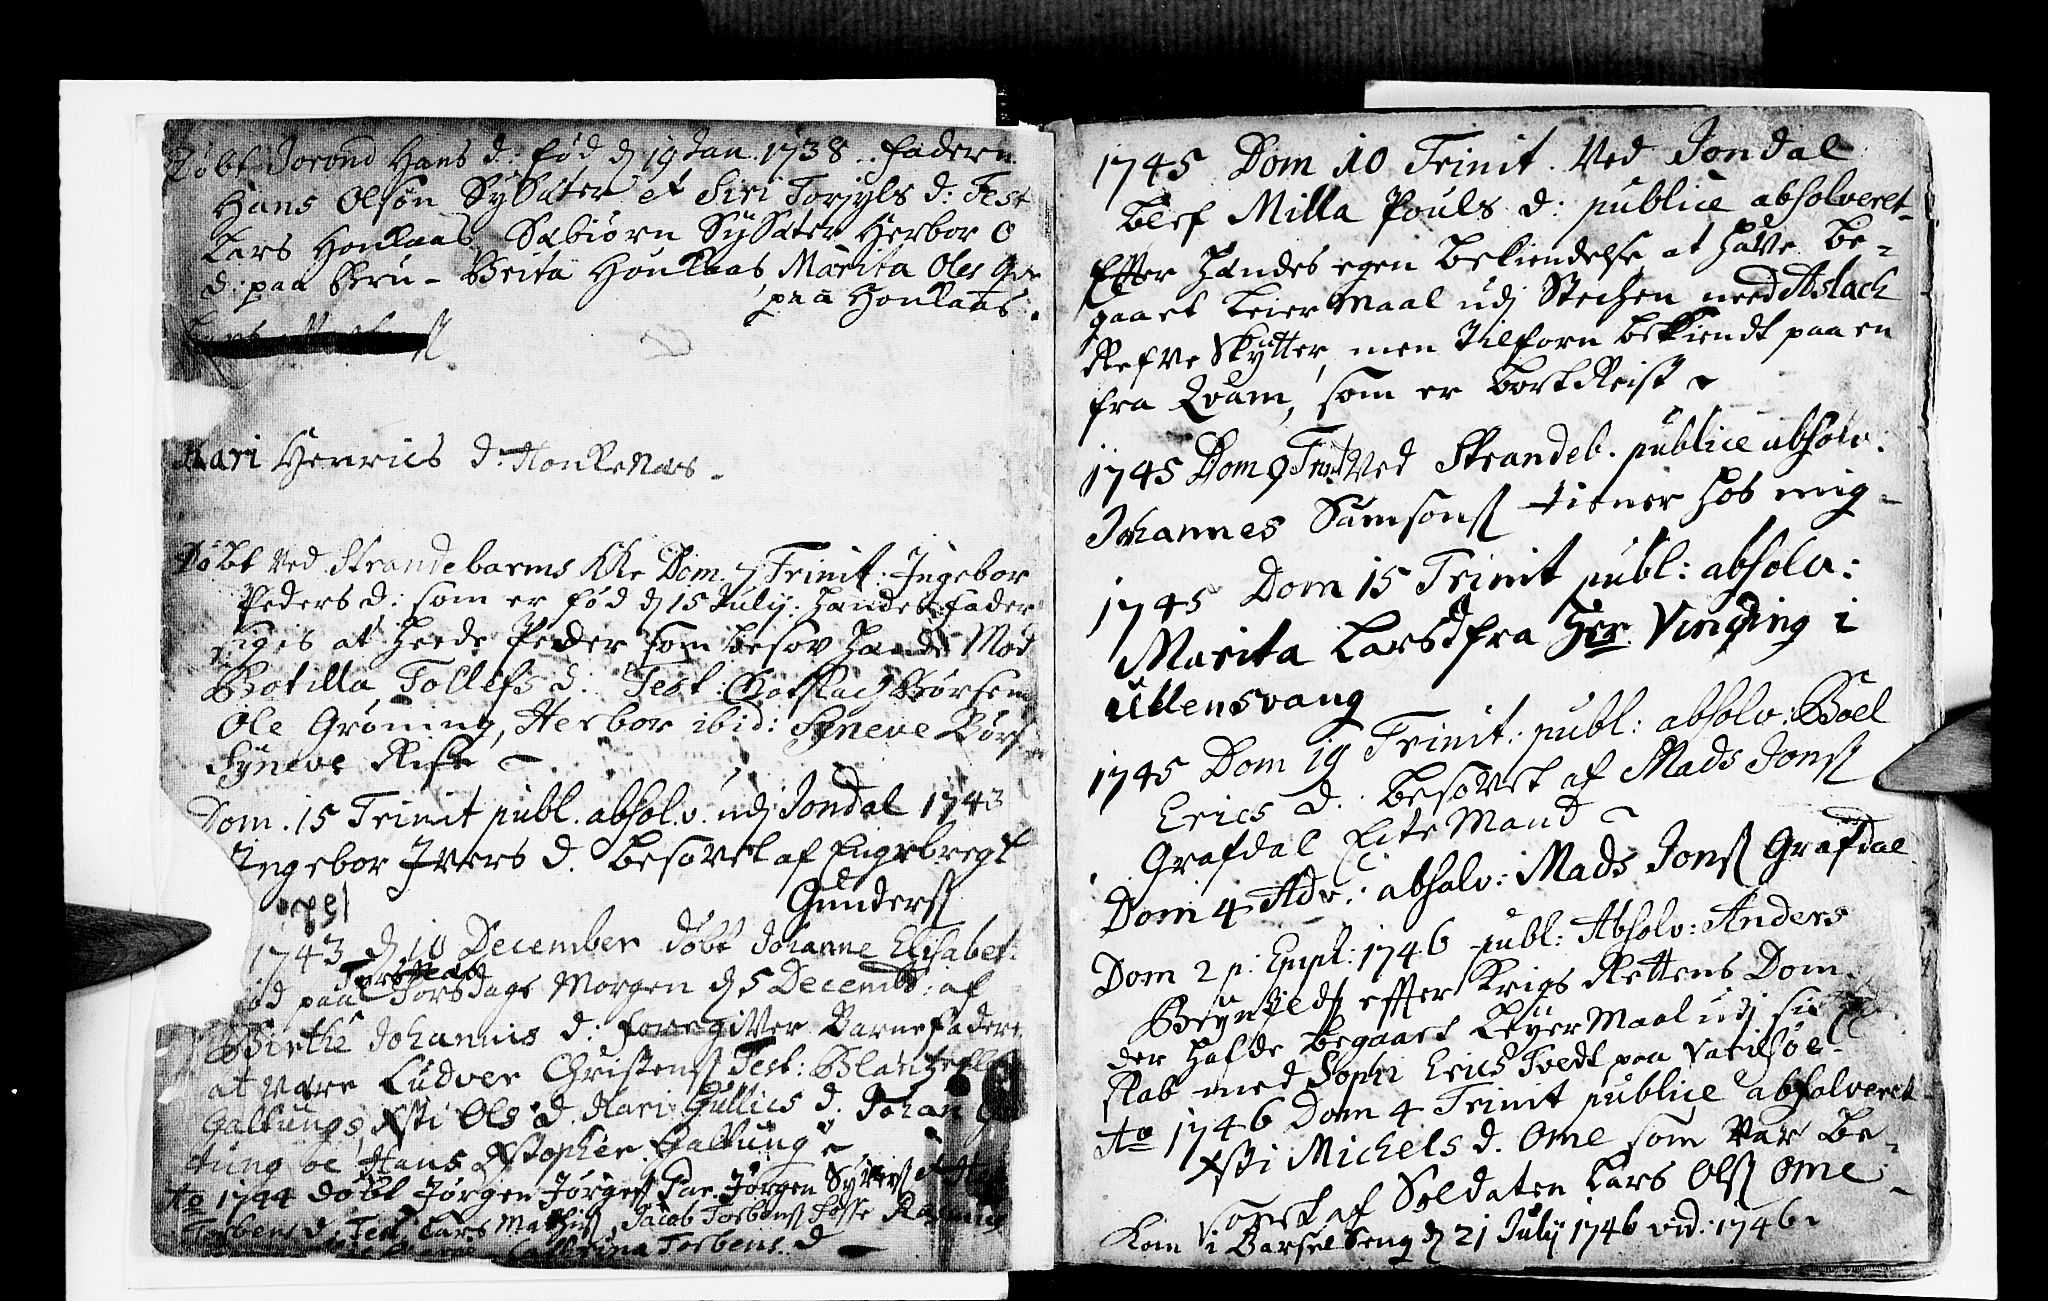 Døbt Jorond Hans d: fød d 19 Jan. 1738.. faderen
Hans Olsøn Sysæter et Siri Torjyls d: Test
Lars Honkaas Sæbiørn Sysæter Herbor O
d: paa Bru - Brita Honkaas Marita Oles
paa Honkaas.
Kari Henrics d. Honkenæs -
Døbt ved Strandebarms Kke Dom. 7 Trinit: Ingebor
Peders d: som er fød d 15 July: hændes fader
siges at heede Peder som besov hænde Mod
Botilla Tollefs d. Test: Børsem
Ole Grøning, Herbor ibid: Syneve Børs
Syneve Rife -
Dom. 15 Trinit publ. absolv. udj Jondal 1743
Ingebor Ivers d. besovet af Engebregt
Gunders
1743 d 10 December døbt Johanne Elisabet:
fød paa Torsdags Morgen d 5 Decemb: af
Birthe Johannis d: foregiver Barnefadere
at være Ludver Christens Test: Blantzeflo
Galtungs, Xsti Ols d. Kari Gullics d. Johan G
tung oc Hans Xstopher Galtung
Ao 1744 døbt Jørgen Jørgens Par. Jørgen
Torbens d. Test, Lars Mathis Jacob Torbens Fosse Rasmus
Cathrina Torbens d -
1745 Dom 10 Trinit. Ved Jondal
blef Milla Pouls d: publice absolveret
Efter hændes egen bekiendelse at have be-
gaaet Leiermaal udj Stechen med Aslach
Refve Skytter, men tilforn bekiendt paa en
fra Qvam, som er bortReist
1745 Dom 9 Trinit Ved Strandeb. publice absolv:
Johannes Samsons tiener hos mig -
1745 Dom 15 Trinit publ: absolv:
Marita Larsd fra Her Vinding i
Ullensvang
1745 Dom 19 Trinit: publ: absolv: Boel
Erics d. besovet af Mads Jons
Grafdal Eite Mand
Dom 4 Adv: absolv: Mads Jons Grafdal
Dom 2 p: Epiph: 1746 publ: Absolv: Anders
Brynjelds efter Krigs Rettens Dom
der hafde begaaet LeyerMaal udj
skab med Sophi Erics Tvedt paa Varilsøe
Ao 1746 Dom 4 Trinit publice absolveret
Xsti Michels d. Ome som var be-
sovet af Soldaten Lars Ols Ome -
Kom i Barselseng d 21 July 1746 vid: 1746